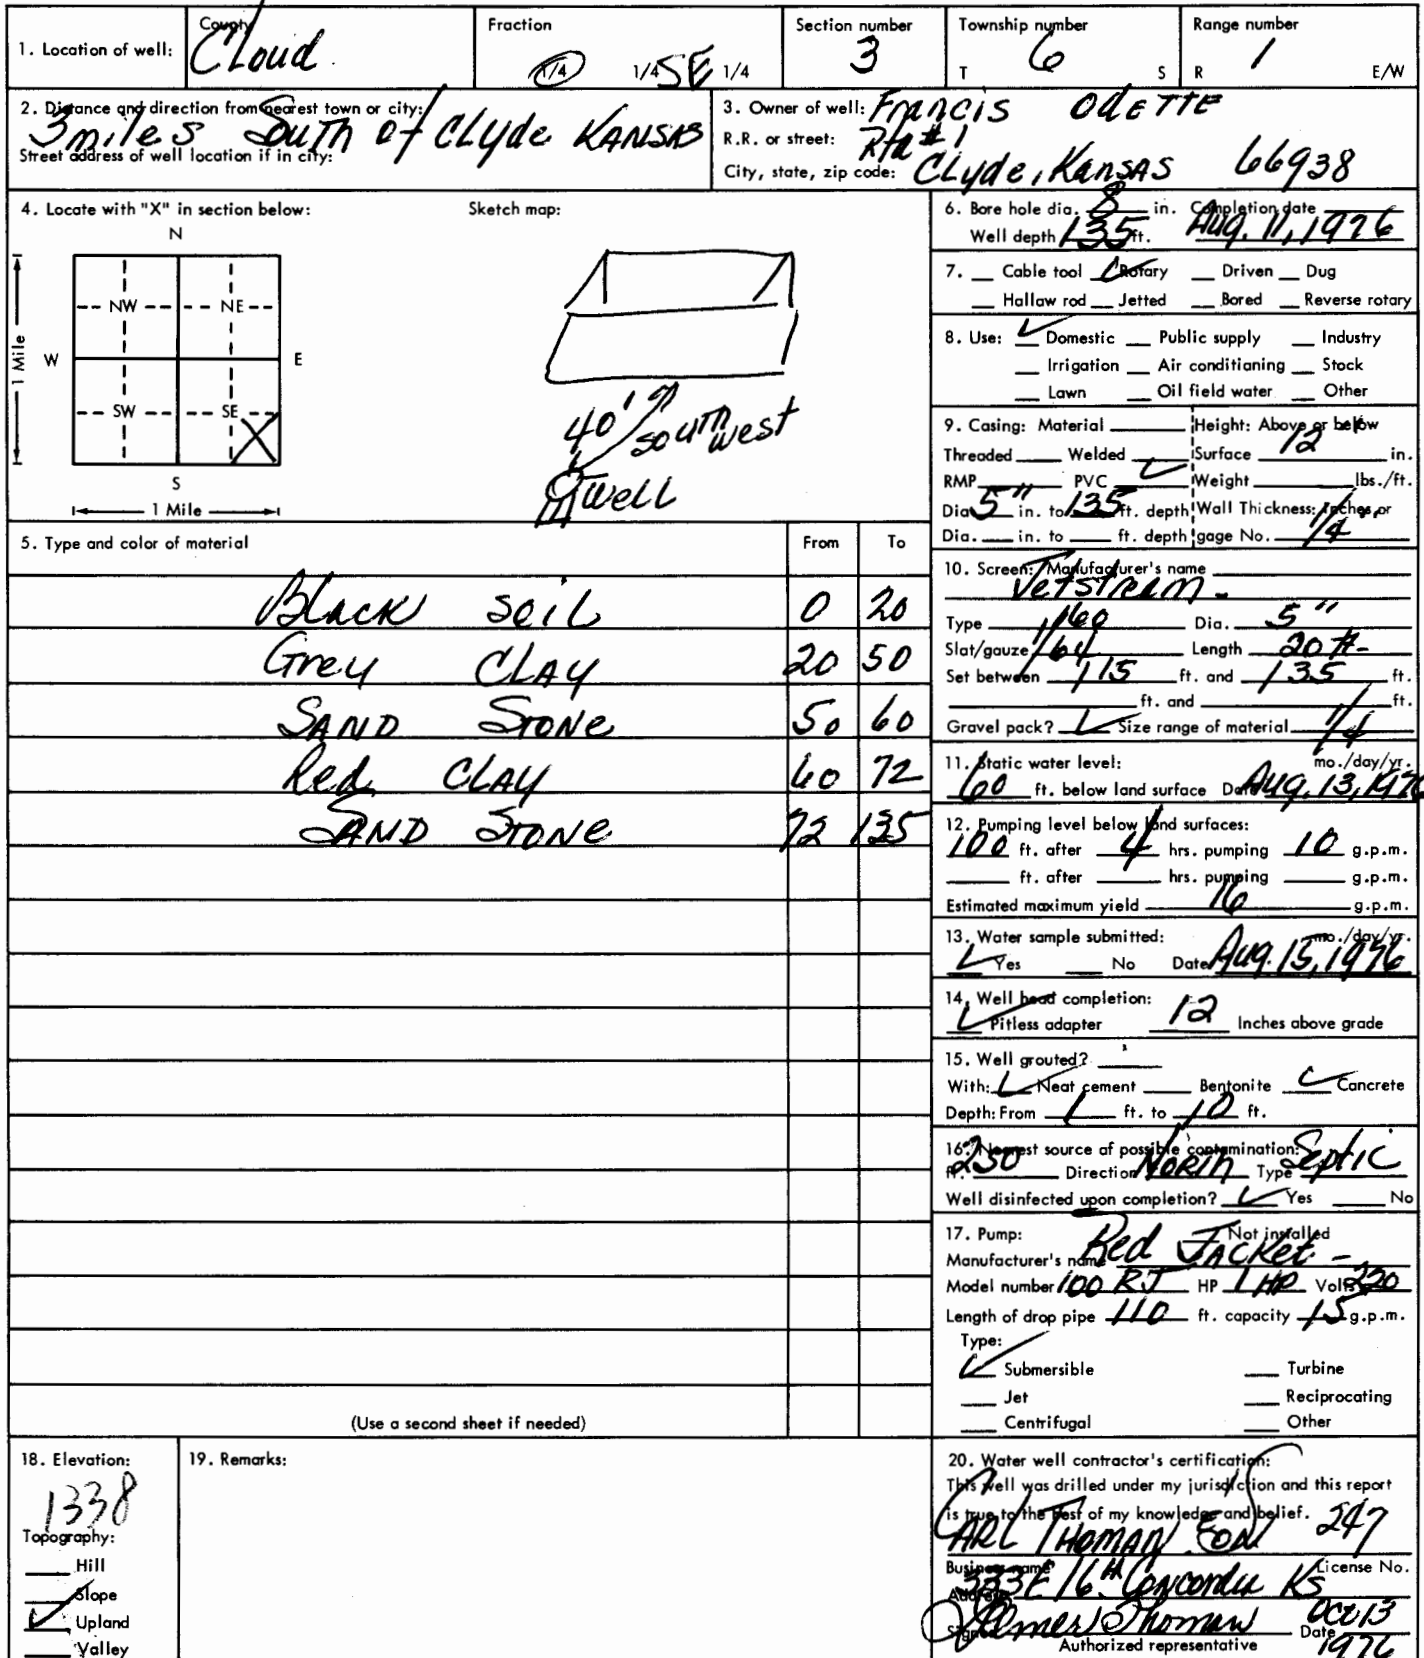 1. Location of well: County Cloud Fraction 1/4 1/4 SE 1/4 Section number 3 Township number T 6 S Range number R 1 E/W
2. Distance and direction from nearest town or city: 3 miles South of Clyde KANSAS
Street address of well location if in city:
3. Owner of well: Francis ODETTE
R.R. or street: Rte #1
City, state, zip code: Clyde, Kansas 66938
4. Locate with "X" in section below: Sketch map:
N
NW NE
W E
1 Mile
SW SE
S
1 Mile
40' South west
well
5. Type and color of material From To
Black soil 0 20
Grey CLAY 20 50
SAND STONE 50 60
Red CLAY 60 72
SAND STONE 72 135
(Use a second sheet if needed)
6. Bore hole dia. 8 in. Completion date
Well depth 135 ft. Aug. 11, 1976
7. Cable tool Rotary Driven Dug
Hallaw rod Jetted Bored Reverse rotary
8. Use: Domestic Public supply Industry
Irrigation Air conditioning Stock
Lawn Oil field water Other
9. Casing: Material Height: Above or below
Threaded Welded Surface 12 in.
RMP PVC Weight lbs./ft.
Dia. 5" in. to 135 ft. depth Wall Thickness: Inches or
Dia. in. to ft. depth gage No. 1/4"
10. Screen: Manufacturer's name
Jetstream -
Type 160 Dia. 5"
Slat/gauze 1/64 Length 20 ft-
Set between 115 ft. and 135 ft.
ft. and ft.
Gravel pack? Size range of material 1/4
11. Static water level: mo./day/yr.
60 ft. below land surface Date Aug. 13, 1976
12. Pumping level below land surfaces:
100 ft. after 4 hrs. pumping 10 g.p.m.
ft. after hrs. pumping g.p.m.
Estimated maximum yield 16 g.p.m.
13. Water sample submitted: mo./day/yr.
Yes No Date Aug. 15, 1976
14. Well head completion:
Pitless adapter 12 Inches above grade
15. Well grouted?
With: Neat cement Bentonite Concrete
Depth: From 1 ft. to 10 ft.
16. Nearest source of possible contamination:
ft. 250 Direction North Type Septic
Well disinfected upon completion? Yes No
17. Pump: Not installed
Manufacturer's name Red JACKet -
Model number 100 RJ HP 1 HP Volts 220
Length of drop pipe 110 ft. capacity 15 g.p.m.
Type:
Submersible Turbine
Jet Reciprocating
Centrifugal Other
18. Elevation:
1338
Topography:
Hill
Slope
Upland
Valley
19. Remarks:
20. Water well contractor's certification:
This well was drilled under my jurisdiction and this report
is true to the best of my knowledge and belief. 247
CARL THOMAN
Business name License No.
Address 333 E 16th Concordia Ks
Signed Elmer Thoman Date Oct 13
Authorized representative 1976